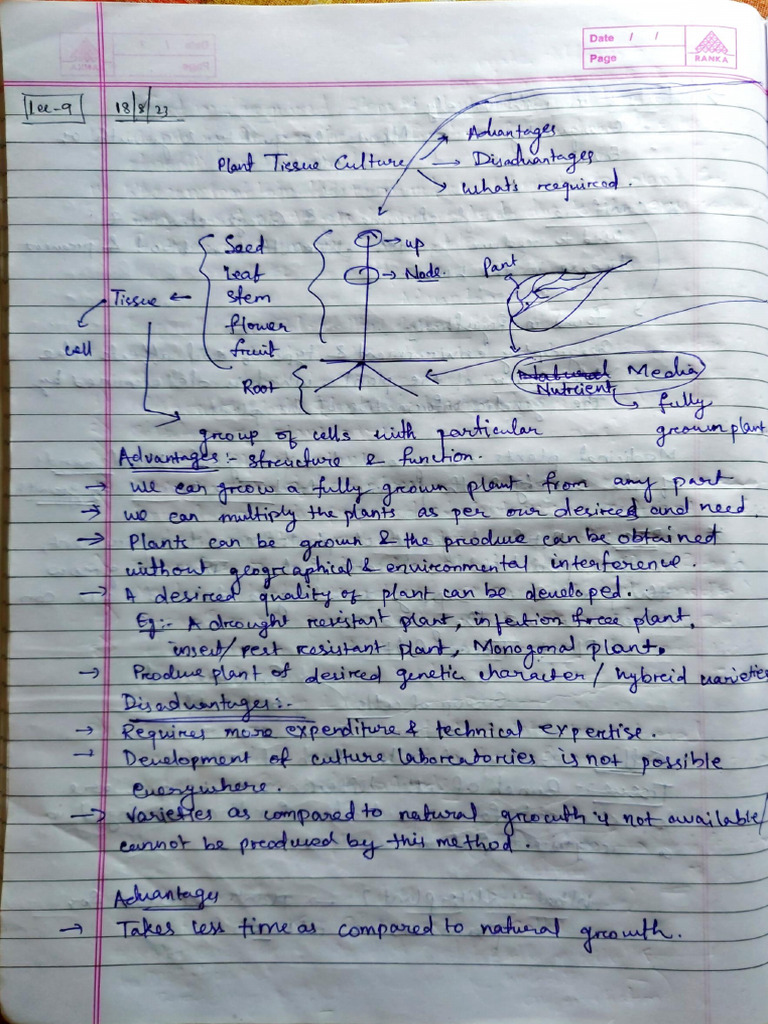 Date / /
Page
RANKA
Lec-9 18/8/23
Advantages
Plant Tissue Culture → Disadvantages
What's required.
Seed
up
leaf
Node.
Part
Tissue ← stem
flower
cell
fruit
Natural Media
Nutrient
Root
fully
grown plant
group of cells with particular
Advantages:- structure & function.
→ We can grow a fully grown plant from any part
→ We can multiply the plants as per our desired and need.
→ Plants can be grown & the produce can be obtained
without geographical & environmental interference.
→ A desired quality of plant can be developed.
Eg:- A drought resistant plant, infection free plant,
insect/pest resistant plant, Monogonal plant.
→ Produce plant of desired genetic character/ hybrid varieties
Disadvantages:-
→ Requires more expenditure & technical expertise.
→ Development of culture laboratories is not possible
everywhere.
→ Varieties as compared to natural growth is not available/
cannot be produced by this method.
Advantages
→ Takes less time as compared to natural growth.